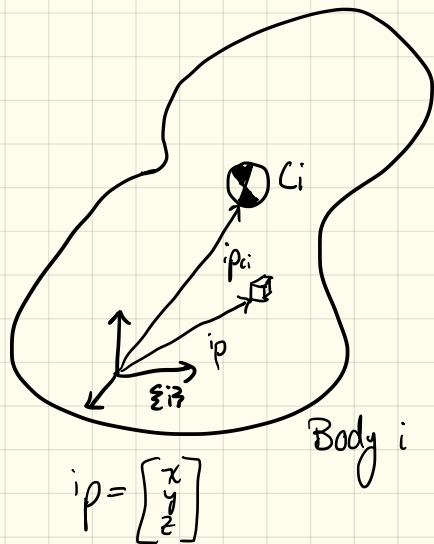 Ci
ⁱpcᵢ
ⁱp
{i}
Body i
ⁱp = [x
y
z]